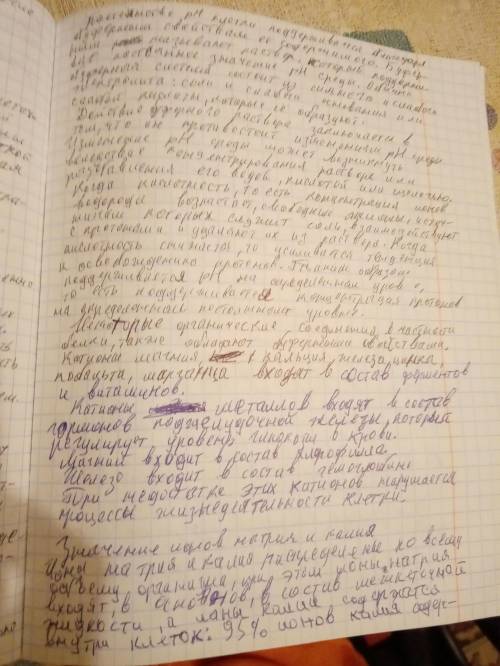 Постоянство pH клетки поддерживается благодаря
буферным свойствам её содержимого. Буфер-
ным называют раствор, который поддержи-
вает постоянное значение pH среды. Обычно
буферная система состоит из сильного и слабого
электролита: соли и слабых основания или
слабой кислоты, которые её образуют.
Действие буферного раствора заключается в
том, что он противостоит изменениям pH среды.
Изменение pH среды может возникнуть
вследствие концентрирования раствора или
разбавления его водой, кислотой или щелочью.
Когда кислотность, то есть концентрация ионов
водорода возрастает, свободные анионы, источ-
ником которых служит соль, взаимодействуют
с протонами и удаляют их из раствора. Когда
кислотность снижается, то усиливается тенденция
к освобождению протонов. Таким образом
поддерживается pH на определённом уров,
то есть поддерживается концентрация протонов
на определённом постоянном уровне.
Некоторые органические соединения, в частности
белки, также обладают буферными свойствами.
Катионы магния, кальция, железа, цинка,
кобальта, марганца входят в состав ферментов
и витаминов.
Катионы металлов входят в состав
гормонов поджелудочной железы, который
регулирует уровень глюкозы в крови.
Магний входит в состав хлорофилла.
Железо входит в состав гемоглобина
При недостатке этих катионов нарушается
процессы жизнедеятельности клетки.
Значение ионов натрия и калия
Ионы натрия и калия распределены по всему
организму, при этом ионы натрия
входят, в основном, в состав межклеточной
жидкости, а ионы калия содержатся
внутри клеток: 95% ионов калия содер-